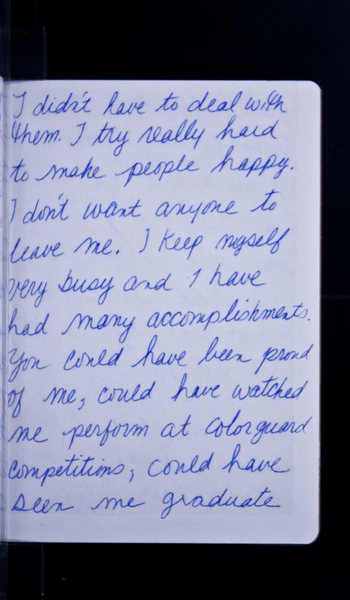 I didn't have to deal with
them. I try really hard
to make people happy.
I don't want anyone to
leave me. I keep myself
very busy and I have
had many accomplishments.
You could have been proud
of me, could have watched
me perform at colorguard
competitions, could have
seen me graduate